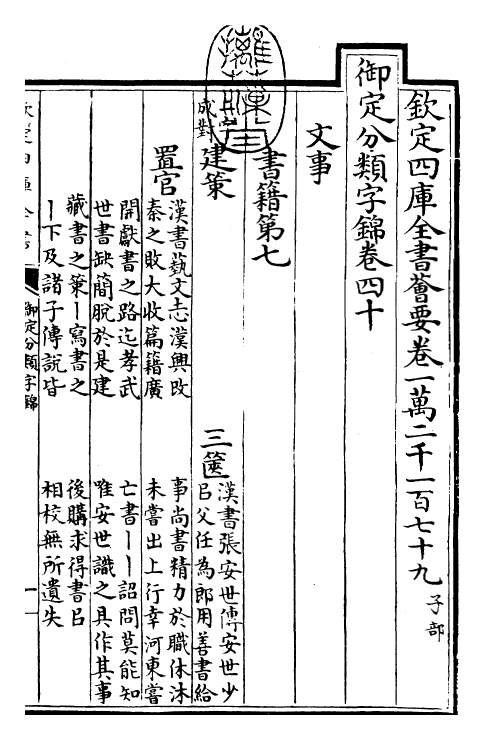 欽定四庫全書薈要卷一萬二千一百七十九 子部
御定分類字錦卷四十
文事
書籍第七
成對
建策 置官
漢書藝文志漢興改
秦之敗大收篇籍廣
開獻書之路迄孝武
世書缺簡脫於是建
藏書之策丨寫書之
丨下及諸子傳說皆
三篋
漢書張安世傳安世少
㠯父任為郎用善書給
事尚書精力於職休沐
未嘗出上行幸河東嘗
亡書丨丨詔問莫能知
唯安世識之具作其事
後購求得書㠯
相校無所遺失
欽定四庫全書
御定分類字錦
一